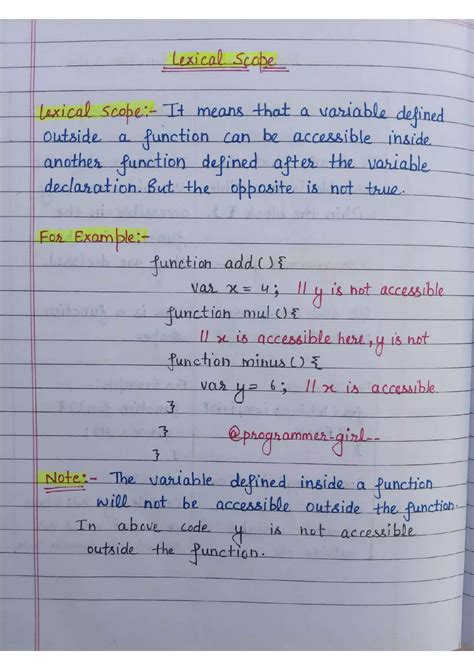 Lexical Scope
Lexical Scope:- It means that a variable defined
outside a function can be accessible inside
another function defined after the variable
declaration. But the opposite is not true.
For Example:-
function add(){
var x = 4; // y is not accessible
function mul(){
// x is accessible here, y is not
function minus(){
var y = 6; // x is accessible.
}
} @programmer-girl--
}
Note:- The variable defined inside a function
will not be accessible outside the function.
In above code y is not accessible
outside the function.